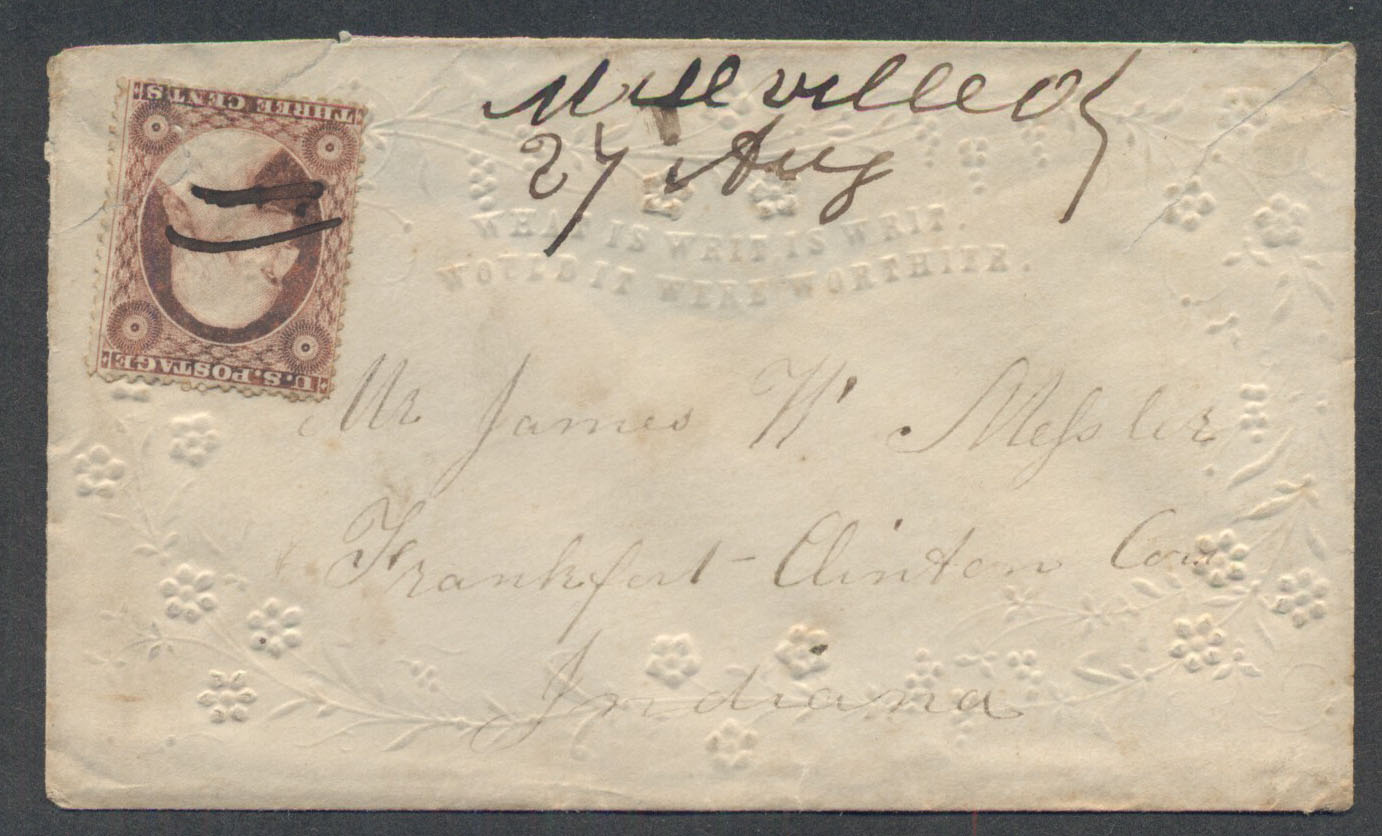 THREE CENTS
U.S. POSTAGE
Millville O
27 Aug
WHAT IS WRIT, IS WRIT.
WOULD IT WERE WORTHIER.
Mr James W Messler
Frankfort Clinton Cou
Indiana